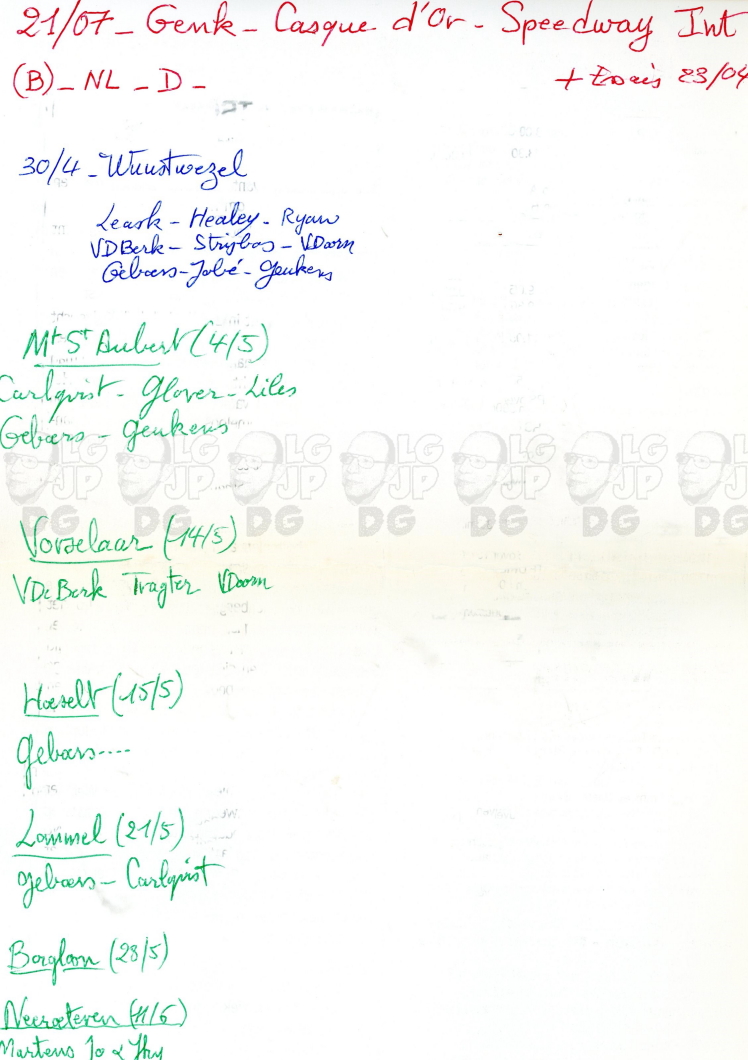 21/07 - Genk - Casque d'Or - Speedway Int
(B) - NL - D -
+ Essais 23/04
30/4 - Wuustwezel
Leask - Healey - Ryan
VDBerk - Strijbos - VDoorn
Geboers - Jobé - Geukens
Mt St Aubert (4/5)
Carlqvist - Glover - Liles
Geboers - Geukens
LG JP DG LG JP DG LG JP DG LG JP DG LG JP DG LG JP DG LG JP DG
Vorselaar (14/5)
VDeBerk Tragter VDoorn
Hoeselt (15/5)
Geboers....
Lommel (21/5)
Geboers - Carlqvist
Borgloon (28/5)
Neeroeteren (11/6)
Martens Jo &